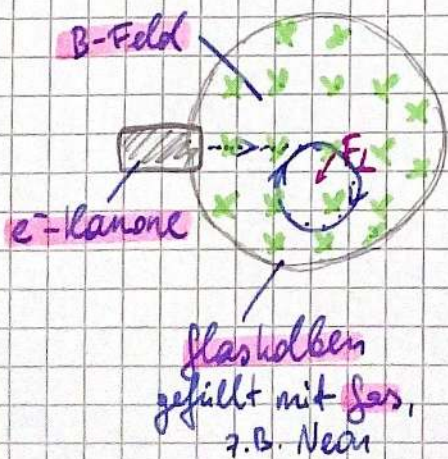 B-Feld
F_L
e⁻-Kanone
Glaskolben
gefüllt mit Gas,
z.B. Neon